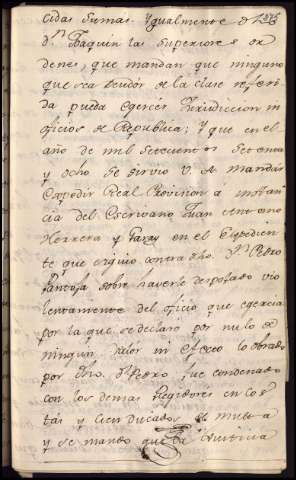 cidas sumas Ygualmente
Dn. Joaquin las superiores or
denes, que mandan que ninguno
que sea deudor de la clase referi
da pueda egercer Jurisdiccion ni
oficios de Republica; Y que en el
año de mil setecientos setenta
y ocho se sirvio V. A. mandar
Expedir Real Provision á instan
cia del Escrivano Juan Antonio
Herrera y Garay en el Expedien
te que siguio contra dho. Dn. Pedro
Pantoja sobre haverle despojado vio
lentamente del oficio que egercia
por la que se declaro por nulo de
ningun valor ni efecto lo obrado
por dho. Dn. Pedro fue condenado
con los demas Regidores en cos
tas y cien ducados de multa
y se mando que la Justicia